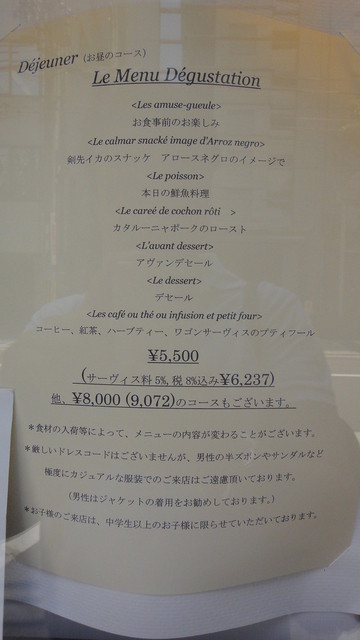 Déjeuner (お昼のコース)
Le Menu Dégustation
<Les amuse-gueule>
お食事前のお楽しみ
<Le calmar snacké image d'Arroz negro>
剣先イカのスナッケ　アロースネグロのイメージで
<Le poisson>
本日の鮮魚料理
<Le careé de cochon rôti　>
カタルーニャポークのロースト
<L'avant dessert>
アヴァンデセール
<Le dessert>
デセール
<Les café ou thé ou infusion et petit four>
コーヒー、紅茶、ハーブティー、ワゴンサーヴィスのプティフール
¥5,500
(サーヴィス料 5%, 税 8%込み¥6,237)
他、¥8,000 (9,072)のコースもございます。
＊食材の入荷等によって、メニューの内容が変わることがございます。
＊厳しいドレスコードはございませんが、男性の半ズボンやサンダルなど
極度にカジュアルな服装でのご来店はご遠慮頂いております。
(男性はジャケットの着用をお勧めしております。)
＊お子様のご来店は、中学生以上のお子様に限らせていただいております。